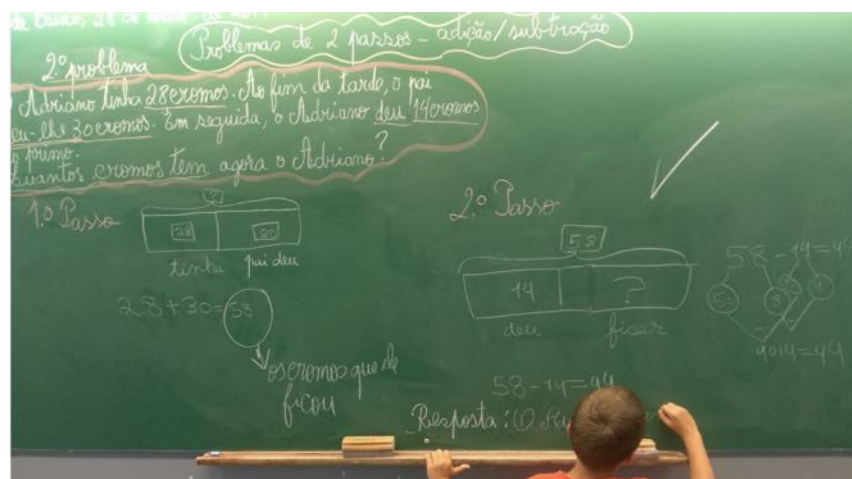 28 de maio de
Problemas de 2 passos – adição/subtração
2.º problema
Adriano tinha 28 cromos. Ao fim da tarde, o pai
deu-lhe 30 cromos. Em seguida, o Adriano deu 14 cromos
primo.
Quantos cromos tem agora o Adriano?
1.º Passo
?
28
tinha pai deu
28+30=58
os cromos que
ficou
2.º Passo
58
14 ?
deu ficar
58-14=44
Resposta: O
58-14=44